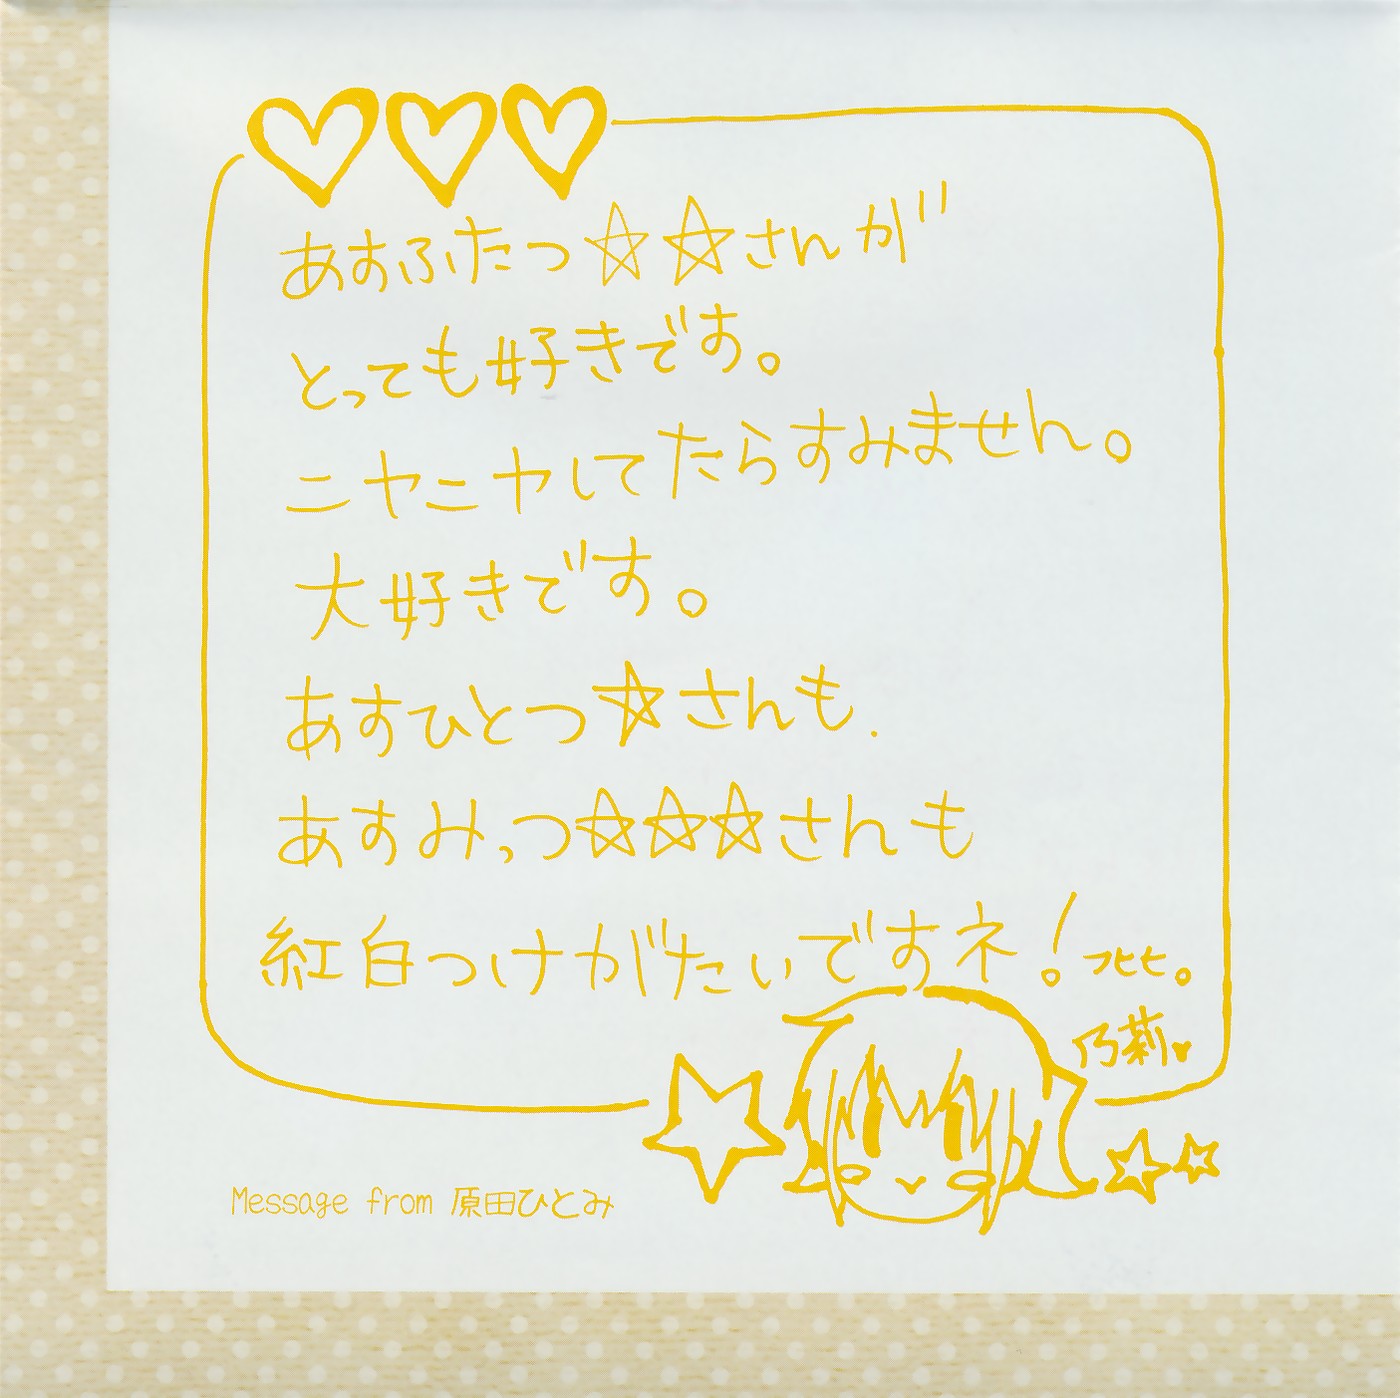 あすふたつ☆☆さんが
とっても好きです。
ニヤニヤしてたらすみません。
大好きです。
あすひとつ☆さんも.
あすみっつ☆☆☆さんも
紅白つけがたいですネ!フヒヒ。
乃莉♥
Message from 原田ひとみ